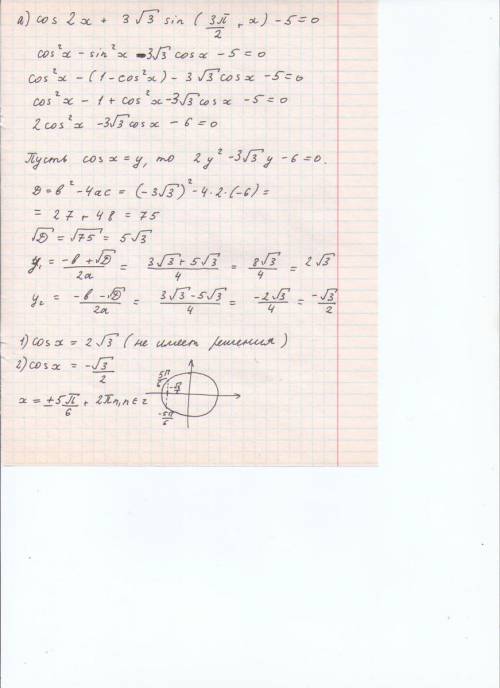 а) cos 2x + 3√3 sin (3π/2 + x) - 5 = 0
cos²x - sin²x - 3√3 cosx - 5 = 0
cos²x - (1 - cos²x) - 3√3 cosx - 5 = 0
cos²x - 1 + cos²x - 3√3 cosx - 5 = 0
2cos²x - 3√3 cosx - 6 = 0
Пусть cosx = y, то 2y² - 3√3 y - 6 = 0.
D = в² - 4ac = (-3√3)² - 4·2·(-6) =
= 27 + 48 = 75
√D = √75 = 5√3
y₁ = (-в + √D)/2a = (3√3 + 5√3)/4 = 8√3/4 = 2√3
y₂ = (-в - √D)/2a = (3√3 - 5√3)/4 = -2√3/4 = -√3/2
1) cosx = 2√3 (не имеет решения)
2) cosx = -√3/2
5π/6
x = ±5π/6 + 2πn, n∈z
-5π/6